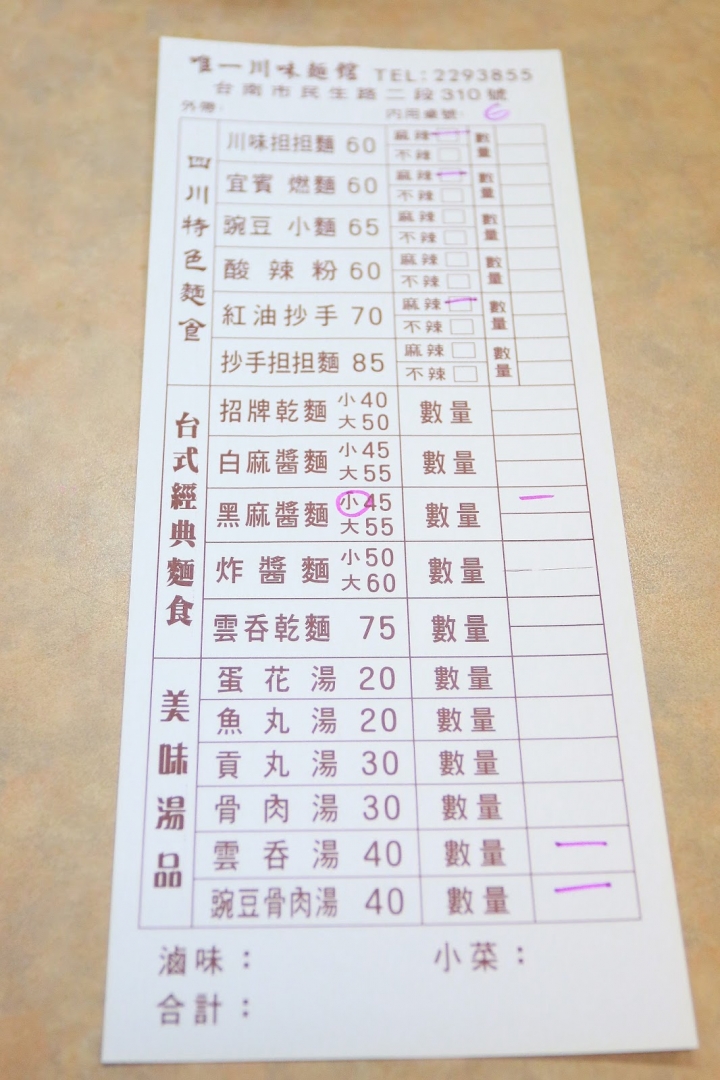 唯一川味麵館 TEL:2293855
台南市民生路二段310號
外帶: 內用桌號: 6
四川特色麵食
川味担担麵 60 麻辣 一 不辣 數量
宜賓 燃麵 60 麻辣 一 不辣 數量
豌豆 小麵 65 麻辣 不辣 數量
酸辣粉 60 麻辣 不辣 數量
紅油抄手 70 麻辣 一 不辣 數量
抄手担担麵 85 麻辣 不辣 數量
台式經典麵食
招牌乾麵 小40 大50 數量
白麻醬麵 小45 大55 數量
黑麻醬麵 小45 大55 數量 一
炸醬麵 小50 大60 數量
雲吞乾麵 75 數量
美味湯品
蛋花湯 20 數量
魚丸湯 20 數量
貢丸湯 30 數量
骨肉湯 30 數量
雲吞湯 40 數量 一
豌豆骨肉湯 40 數量 一
滷味: 小菜:
合計: